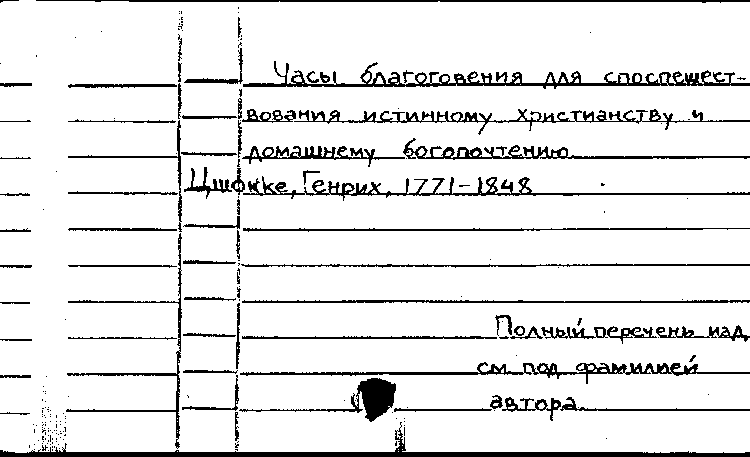 Часы благоговения для споспешест-
вования истинному христианству и
домашнему богопочтению.
Цшокке, Генрих, 1771-1848
Полный перечень изд.
см. под фамилией
автора.